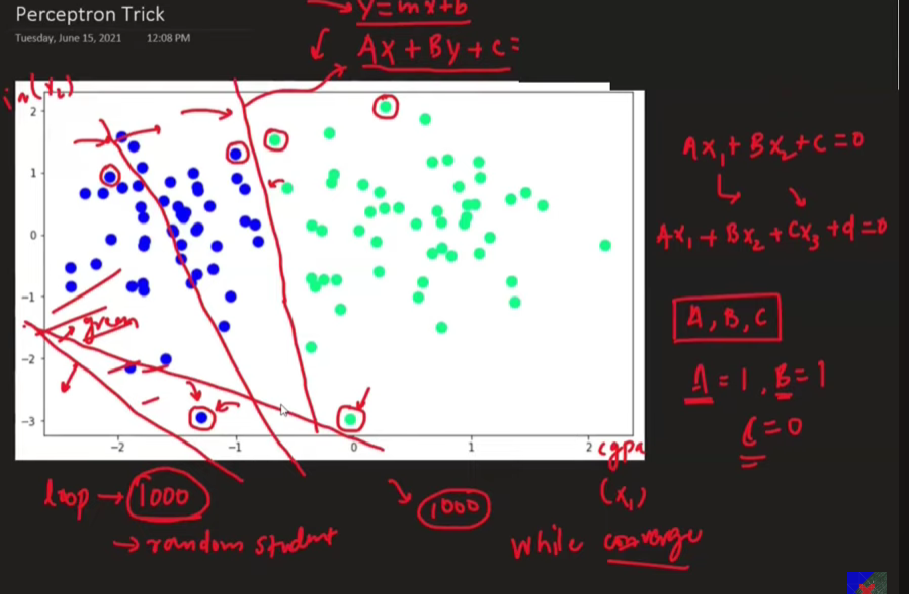 Perceptron Trick
Tuesday, June 15, 2021 12:08 PM
y = mx + b
Ax + By + c =
(x₂)
2
1
0
-1
-2
-3
green
-2 -1 0 1 2
cgpa
(x₁)
Ax₁ + Bx₂ + C = 0
Ax₁ + Bx₂ + Cx₃ + d = 0
A, B, C
A = 1, B = 1
C = 0
loop → 1000
→ random student
1000
while converge